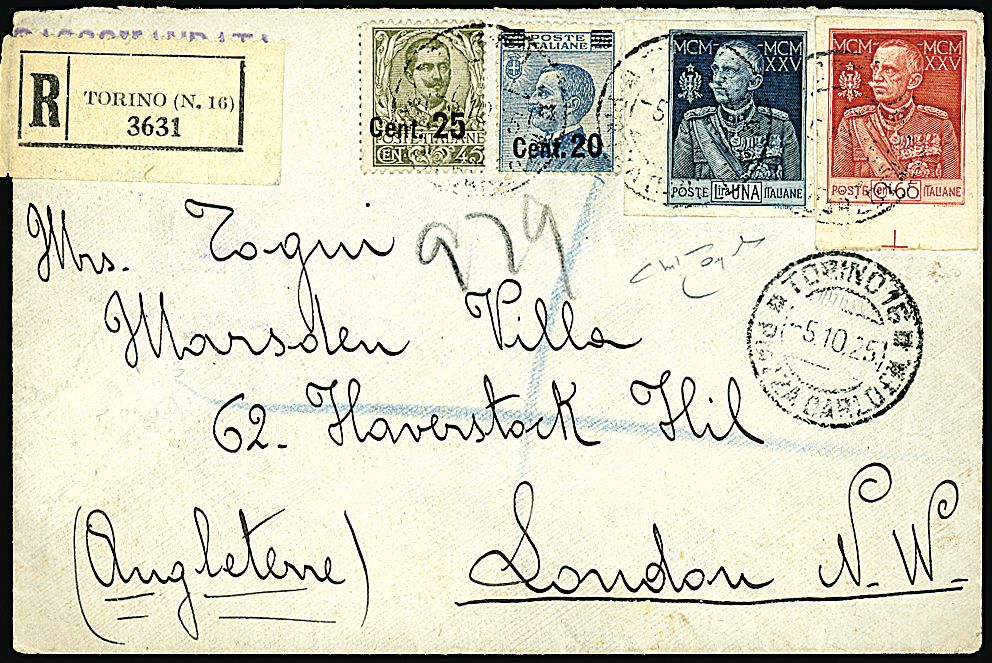 RACCOMANDATA
R
TORINO (N. 16)
3631
POSTE ITALIANE
CENT. 45
Cent. 25
POSTE
ITALIANE
Cent. 20
MCM MCM
XXV
POSTE Lira UNA ITALIANE
MCM MCM
XXV
POSTE Cent 65 ITALIANE
979
TORINO 16
-5.10.25
Mrs. Togni
Marsden Villa
62- Haverstock Hil
(Angleterre) London N. W.